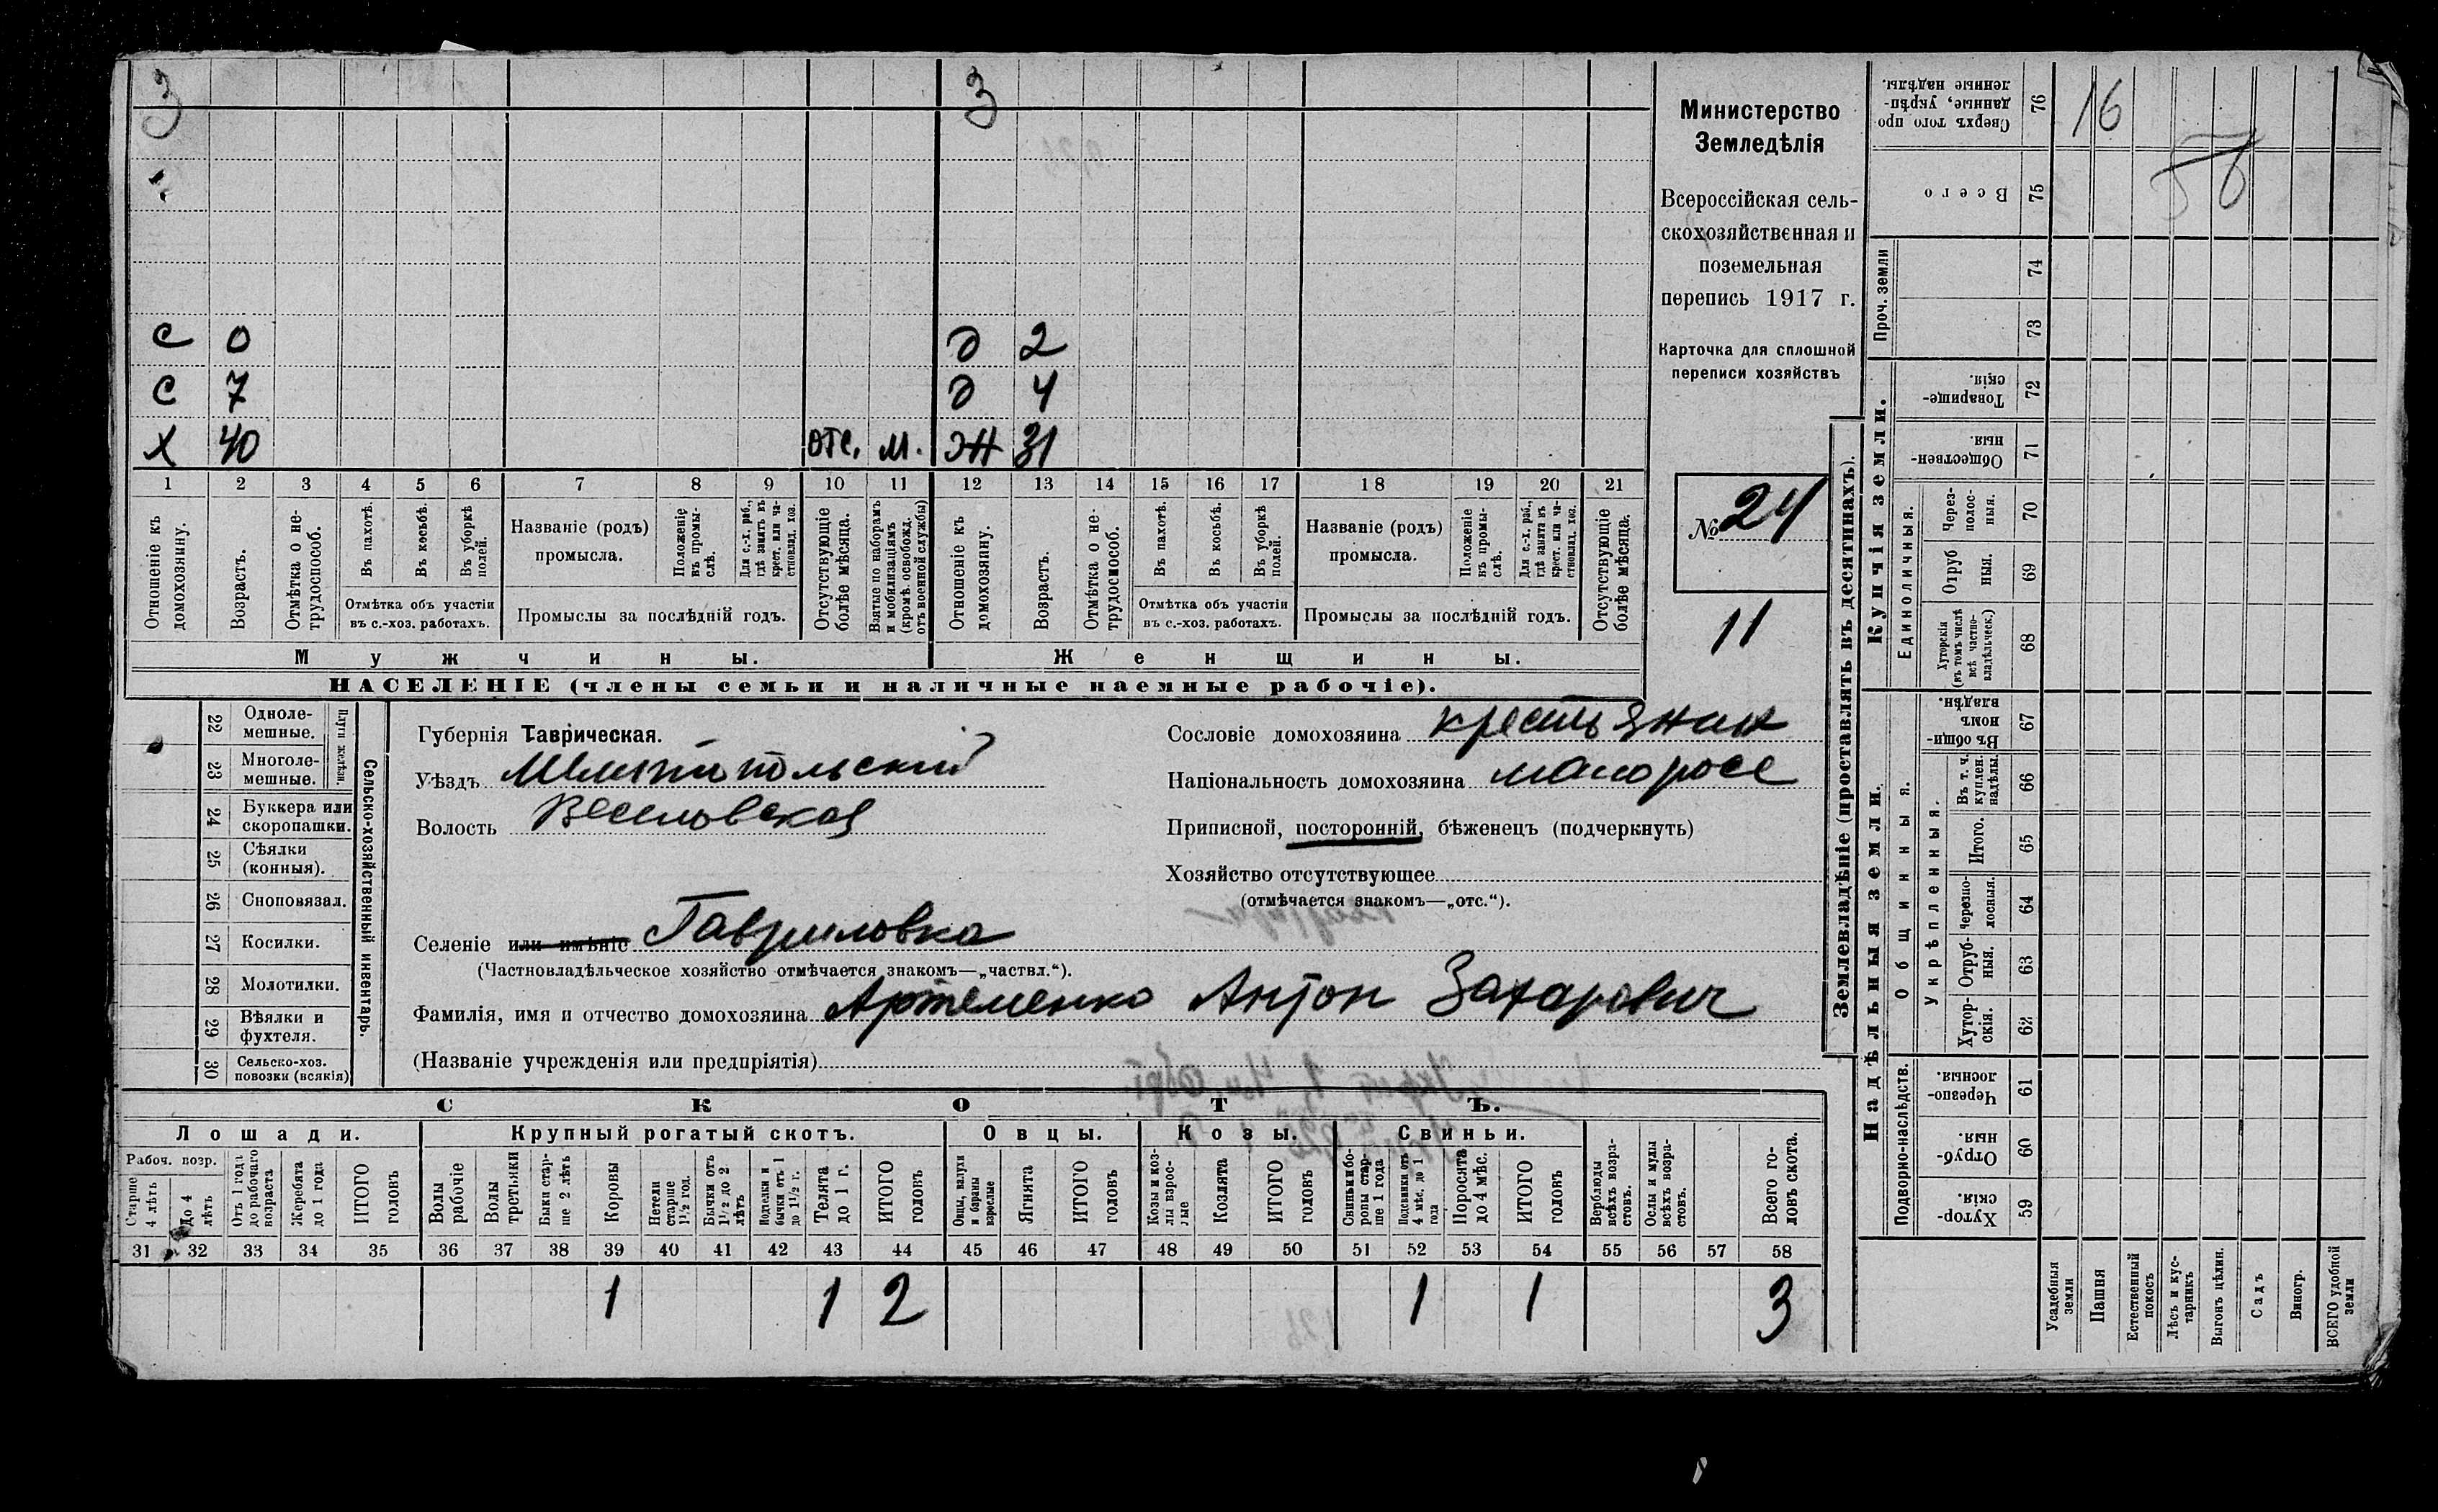 3 3
с 0 д 2
с 7 д 4
х 40 отс. м. ж 31
1 2 3 4 5 6 7 8 9 10 11 12 13 14 15 16 17 18 19 20 21
Отношеніе къ домохозяину.
Возрастъ.
Отмѣтка о не-трудоспособ.
Въ пахотѣ.
Въ косьбѣ.
Въ уборкѣ полей.
Отмѣтка объ участіи
въ с.-хоз. работахъ.
Названіе (родъ)
промысла.
Положеніе въ промы-слѣ.
Для с.-х. раб., гдѣ занятъ въ крест. или ча-стновлад. хоз.
Промыслы за послѣдній годъ.
Отсутствующіе болѣе мѣсяца.
Взятые по наборамъ и мобилизаціямъ (кромѣ освобожд. отъ военной службы)
Отношеніе къ домохозяину.
Возрастъ.
Отмѣтка о не-трудоспособ.
Въ пахотѣ.
Въ косьбѣ.
Въ уборкѣ полей.
Отмѣтка объ участіи
въ с.-хоз. работахъ.
Названіе (родъ)
промысла.
Положеніе въ промы-слѣ.
Для с.-х. раб., гдѣ занята въ крест. или ча-стновлад. хоз.
Промыслы за послѣдній годъ.
Отсутствующіе болѣе мѣсяца.
Мужчины. Женщины.
НАСЕЛЕНІЕ (члены семьи и наличные наемные рабочіе).
Министерство
Земледѣлія
Всероссійская сель-
скохозяйственная и
поземельная
перепись 1917 г.
Карточка для сплошной
переписи хозяйствъ
№ 24
11
22 Одноле-мешные.
23 Многоле-мешные.
Плуги желѣзн.
24 Буккера или скоропашки.
25 Сѣялки (конныя).
26 Сноповязал.
27 Косилки.
28 Молотилки.
29 Вѣялки и фухтеля.
30 Сельско-хоз. повозки (всякія)
Сельско-хозяйственный инвентарь.
Губернія Таврическая.
Уѣздъ Мелитопольский
Волость Веселовская
Селеніе или имѣніе Гавриловка
(Частновладѣльческое хозяйство отмѣчается знакомъ—„частвл.“).
Фамилія, имя и отчество домохозяина Артеменко Антон Захарович
(Названіе учрежденія или предпріятія)
Сословіе домохозяина крестьянин
Національность домохозяина малоросс
Приписной, посторонній, бѣженецъ (подчеркнуть)
Хозяйство отсутствующее
(отмѣчается знакомъ—„отс.“).
СКОТЪ.
Лошади. Крупный рогатый скотъ. Овцы. Козы. Свиньи.
Рабоч. возр.
Старше 4 лѣтъ
До 4 лѣтъ
Отъ 1 года до рабочаго возраста
Жеребята до 1 года
ИТОГО головъ
Волы рабочіе
Волы третьяки
Быки стар-ше 2 лѣтъ
Коровы
Нетели старше 1½ год.
Бычки отъ 1½ до 2 лѣтъ
Подтелки и бычки отъ 1 до 1½ г.
Телята до 1 г.
ИТОГО головъ
Овцы, валухи и бараны взрослые
Ягнята
ИТОГО головъ
Козы и коз-лы взрос-лые
Козлята
ИТОГО головъ
Свиньи и бо-ровы стар-ше 1 года
Подсвинки отъ 4 мѣс. до 1 года
Поросята до 4 мѣс.
ИТОГО головъ
Верблюды всѣхъ возра-стовъ.
Ослы и мулы всѣхъ возра-стовъ.
Всего го-ловъ скота.
31 32 33 34 35 36 37 38 39 40 41 42 43 44 45 46 47 48 49 50 51 52 53 54 55 56 57 58
1 1 2 1 1 3
Землевладѣніе (проставлять въ десятинахъ).
Купчія земли.
Надѣльныя земли.
Сверхъ того про-данные, укрѣп-ленные надѣлы. 76
16
Всего 75
Проч. земли 74 73
Товарище-скія. 72
Обществен-ныя. 71
Единоличныя.
Через-полос-ныя. 70
Отруб ныя. 69
Хуторскія (въ томъ числѣ всѣ частно-владѣльческ.) 68
Общинныя.
Въ общи-номъ владѣн. 67
Укрѣпленныя.
Въ т. ч. куплен. надѣлы. 66
Итого. 65
Черезпо-лосныя. 64
Отруб-ныя. 63
Хутор-скія. 62
Подворно-наслѣдств.
Черезпо-лосныя. 61
Отруб-ныя. 60
Хутор-скія. 59
Усадебныя земли
Пашня
Естественный покосъ
Лѣсъ и кус-тарникъ
Выгонъ цѣлин.
Садъ
Виногр.
ВСЕГО удобной земли